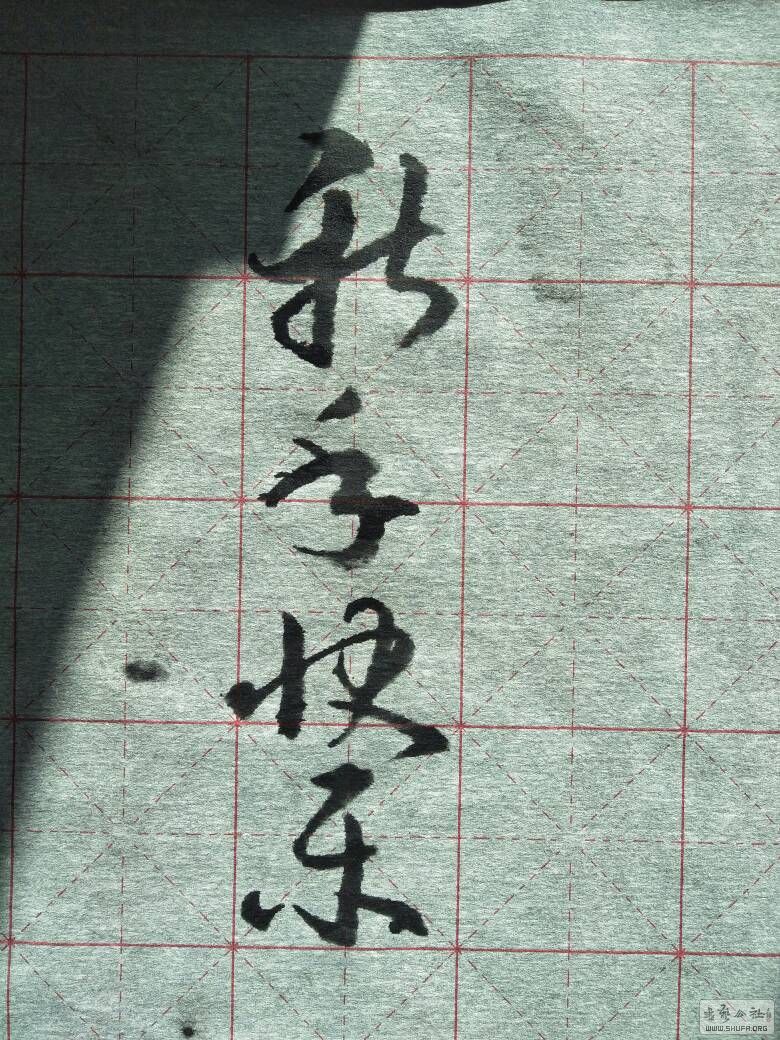 新年快乐
書法公社
WWW.SHUFA.ORG